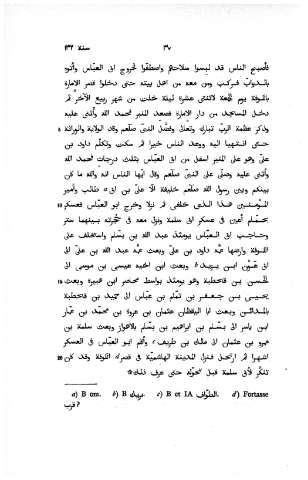 سنة ١٣٢ ٣٧
فاصبح الناس قد لبسوا سلاحهم واصطفّوا لخروج ابى العبّاس وأتوه
بالدوابّ فركب ومن معه من اهل بيته حتى دخلوا قصر الامارة
بالكوفة يوم الجمعة لاثنتى عشرة ليلة خلت من شهر ربيع الآخر ثم
دخل المسجد من دار الامارة فصعد المنبر فحمد الله وأثنى عليه
5 وذكر عظمة الربّ تبارك وتعالى وفضل النبىّ صلّعم وقاد الولاية والوراثة
حتى انتهيا اليه ووعد الناس خيرا ثم سكت وتكلّم داود بن
علىّ وهو على المنبر اسفل من ابى العبّاس بثلث درجات فحمد الله
وأثنى عليه وصلّى على النبىّ صلّعم وقال ايّها الناس انه والله ما كان
بينكم وبين رسول الله صلّعم خليفة الا علىّ بن ابى طالب وأمير
المؤمنين هذا الذى خلفى ثم نزلا وخرج ابو العبّاس فعسكر
بحمّام أعين فى عسكر ابى سلمة ونزل معه فى حجرته بينهما ستر
وحاجب ابى العبّاس يومئذ عبد الله بن بسّام واستخلف على
الكوفة وارضها عمّه داود بن علىّ وبعث عمّه عبد الله بن علىّ الى
ابى عون بن يزيد وبعث ابن اخيه عيسى بن موسى الى
15 الحسن بن قحطبة وهو يومئذ بواسط محاصر ابن هبيرة وبعث
يحيى بن جعفر بن تمّام بن عبّاس الى حميد بن قحطبة
بالمدائن وبعث ابا اليقظان عثمان بن عروة بن محمد بن عمّار
ابن ياسر الى بسّام بن ابراهيم بن بسّام بالاهواز وبعث سلمة بن
عمرو بن عثمان الى مالك بن طريف وأقام ابو العبّاس فى العسكر
20 اشهرا ثم ارتحل فنزل المدينة الهاشميّة فى قصر الكوفة وقد كان
تنكّر لأبى سلمة قبل تحوّله حتى عرف ذلك
a) B om. b) B بريد. c) B et IA الطواف. d) Fortasse
قرب؟